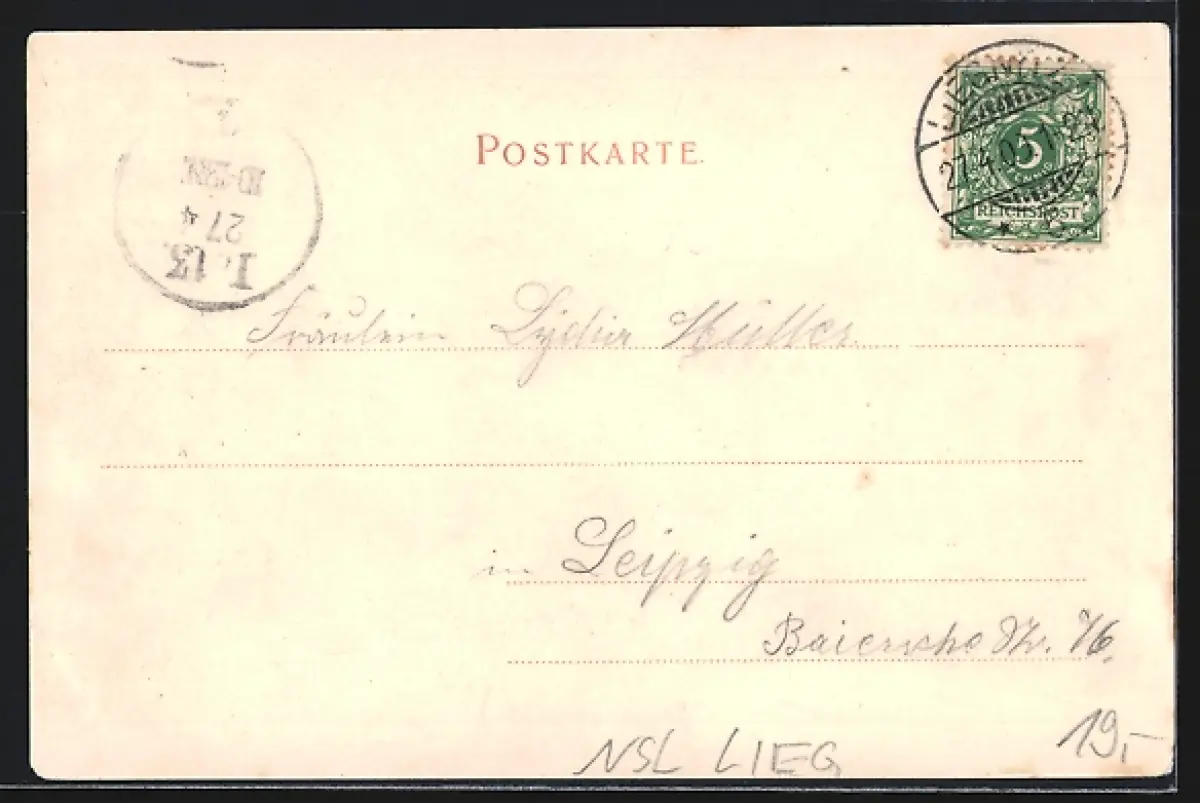 POSTKARTE.
5
REICHSPOST
27.4.
27 4
Fräulein Lydia Müller.
in Leipzig
Baiersche Str.
NSL LIEG
19,-